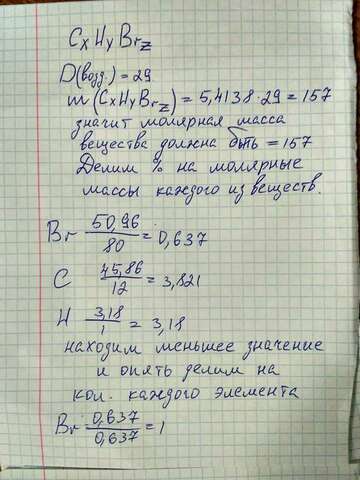 CxHyBrz
D(возд.) = 29
m(CxHyBrz) = 5,4138·29 = 157
значит молярная масса
вещества должна быть = 157
Делим % на молярные
массы каждого из веществ.
Br 50,96/80 = 0,637
C 45,86/12 = 3,821
H 3,18/1 = 3,18
находим меньшее значение
и опять делим на
кол. каждого элемента
Br = 0,637/0,637 = 1